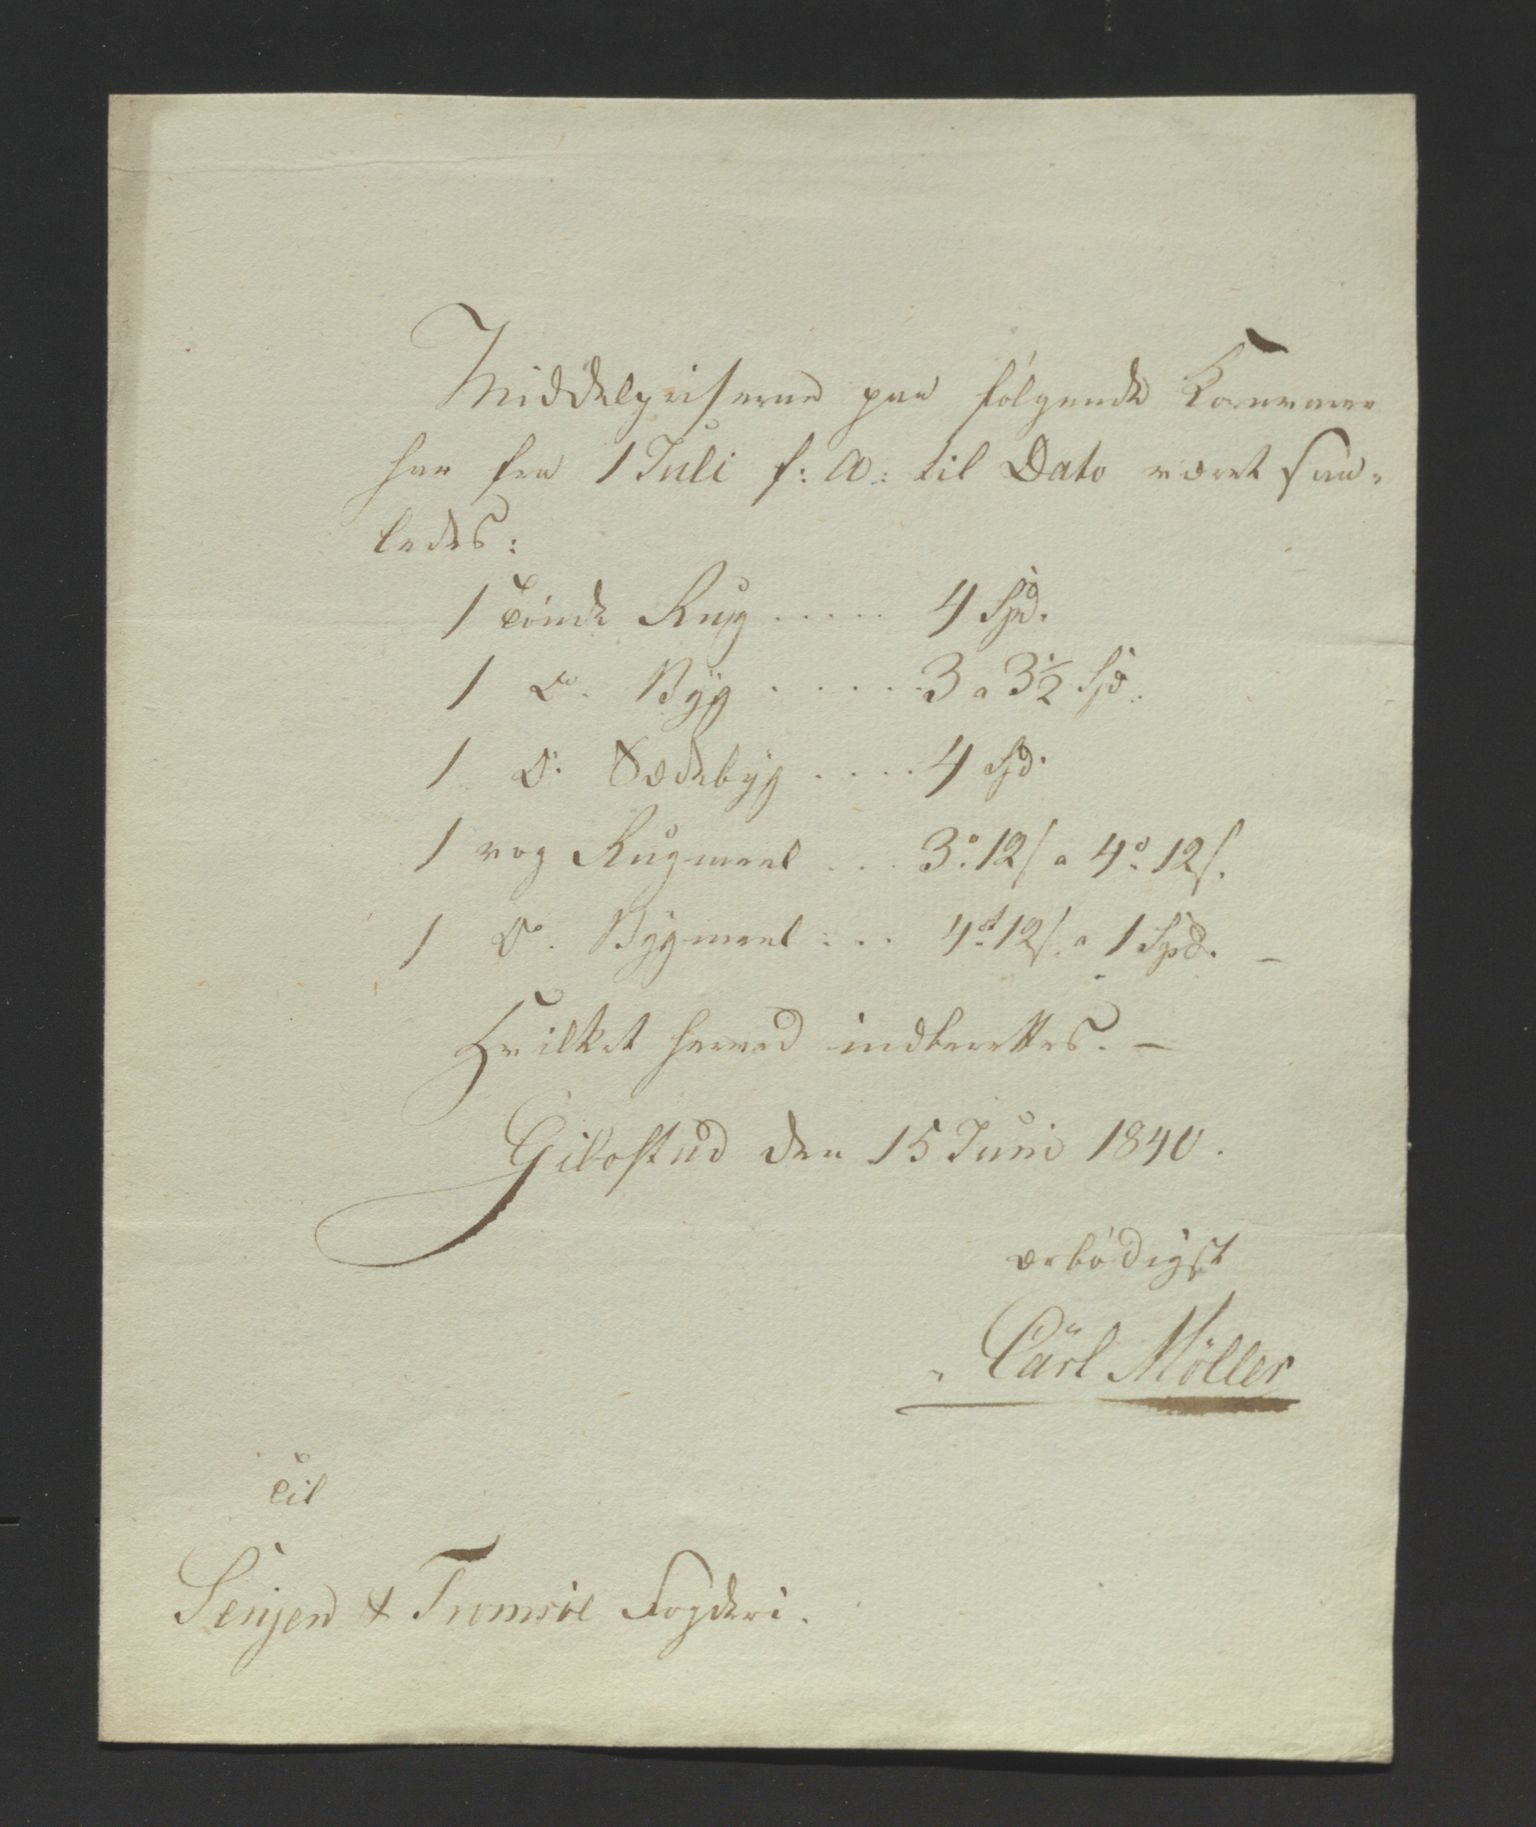 Middelpriserne paa følgende Kornvarer
har fra 1 Juli f: A: til Dato været saa-
ledes:
1 Tønde Rug ..... 4 Spd.
1 Do. Byg ..... 3 a 3½ Spd.
1 Do. Sædebyg .... 4 Spd.
1 vog Rugmeel ... 3o. 12s a 4o. 12s.
1 Do. Bygmeel ... 4d. 12s. a 1 Spd. -
Hvilket herved indberettes. -
Gibostad den 15 Juni 1840.
ærbødigst
Carl Møller
Til
Senjen & Tromsøe Fogderi.